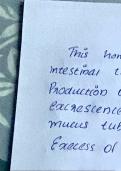 This hom
intestinal t
Production o
excrescence
mucus tub
Excess of